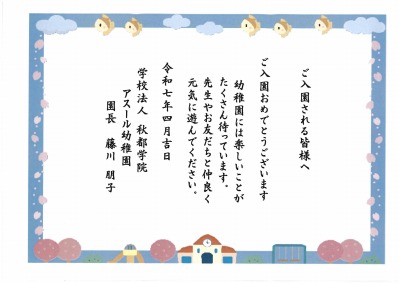 ご入園される皆様へ
ご入園おめでとうございます
幼稚園には楽しいことが
たくさん待っています。
先生やお友だちと仲良く
元気に遊んでください。
令和七年四月吉日
学校法人 秋都学院
アスール幼稚園
園長 藤川 朋子